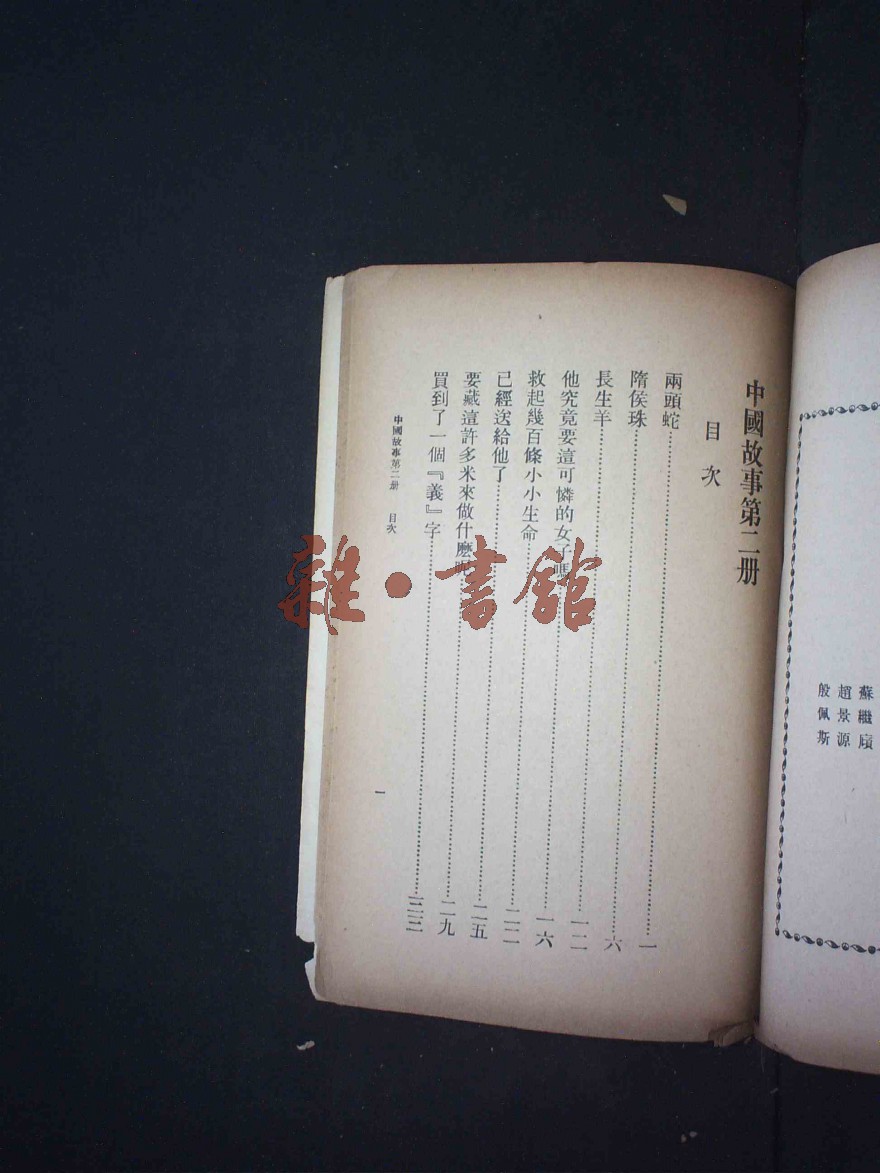 蘇繼廎
趙景源
殷佩斯
中國故事第二册
目次
兩頭蛇……一
隋侯珠……六
長生羊……一二
他究竟要這可憐的女子嗎……一六
救起幾百條小小生命……二二
已經送給他了……二五
要藏這許多米來做什麼呢……二九
買到了一個『義』字……三三
中國故事第二册 目次
一
雜·書館